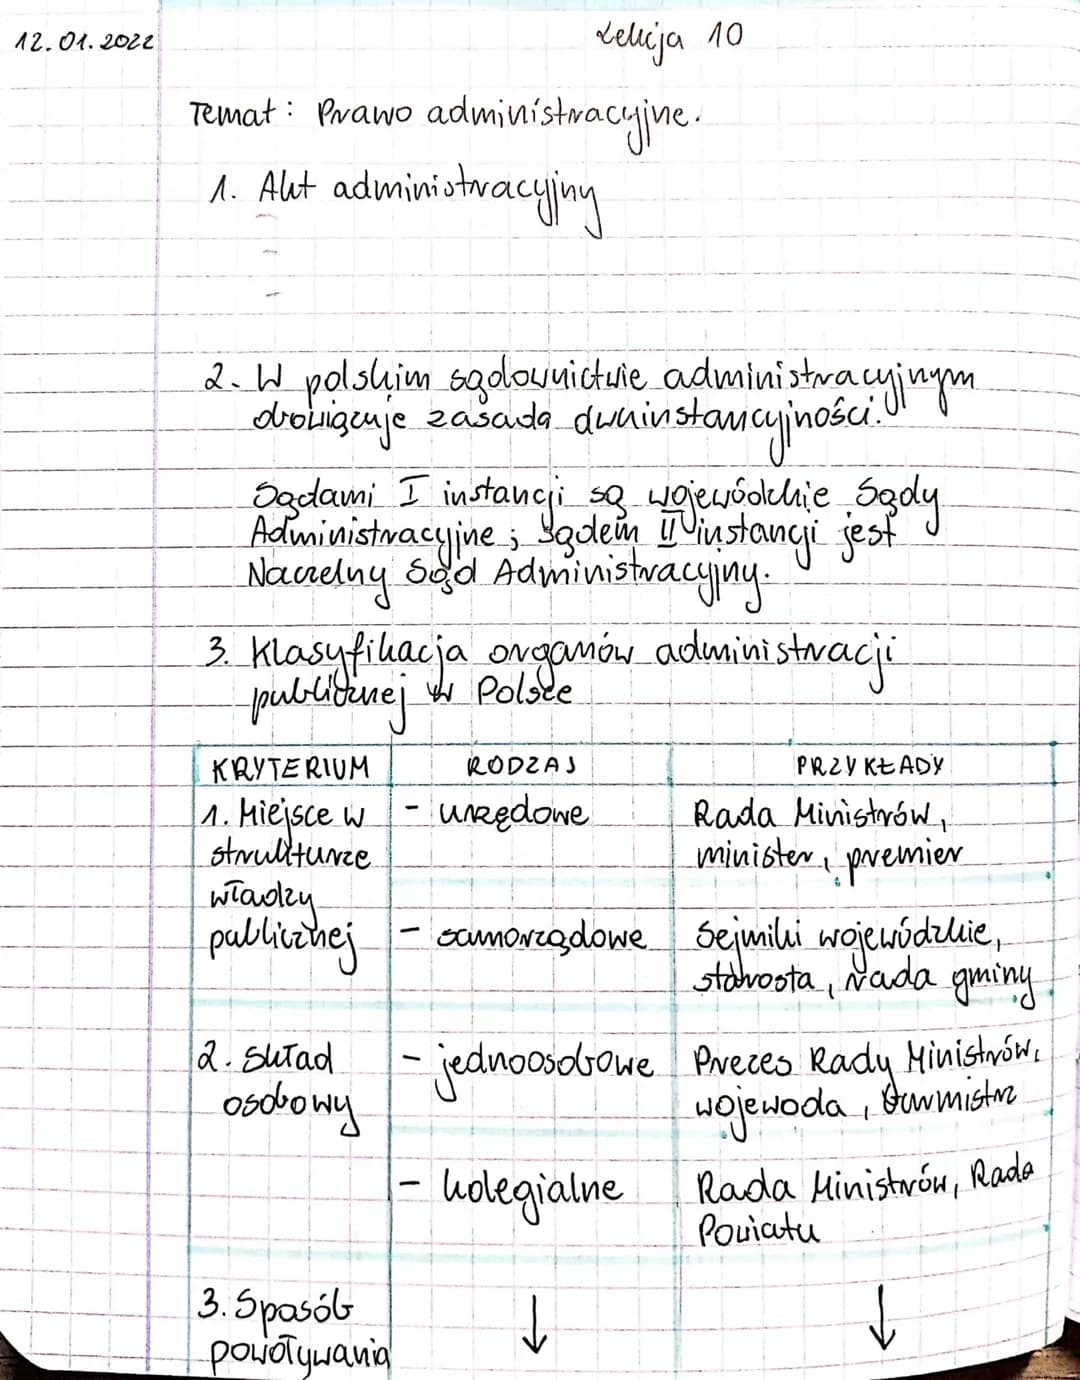 12.01.2022
Lekcja 10
Temat: Prawo administracyjne.
1. Akt administracyjny
-
-
-
2. W polskim sądownictwie administracyjnym
obowiązuje zasada dwuinstancyjności.
Sądami I instancji są wojewódzkie Sądy
Administracyjne; Sądem II instancji jest
Naczelny Sąd Administracyjny.
3. Klasyfikacja organów administracji
publicznej w Polsce
KRYTERIUM RODZAJ PRZYKŁADY
1. Miejsce w - urzędowe Rada Ministrów,
strukturze minister, premier
władzy
publicznej - samorządowe Sejmiki wojewódzkie,
starosta, rada gminy
2. Skład - jednoosobowe Prezes Rady Ministrów,
osobowy wojewoda, burmistrz
- kolegialne Rada Ministrów, Rada
Powiatu
3. Sposób ↓ ↓
powoływania